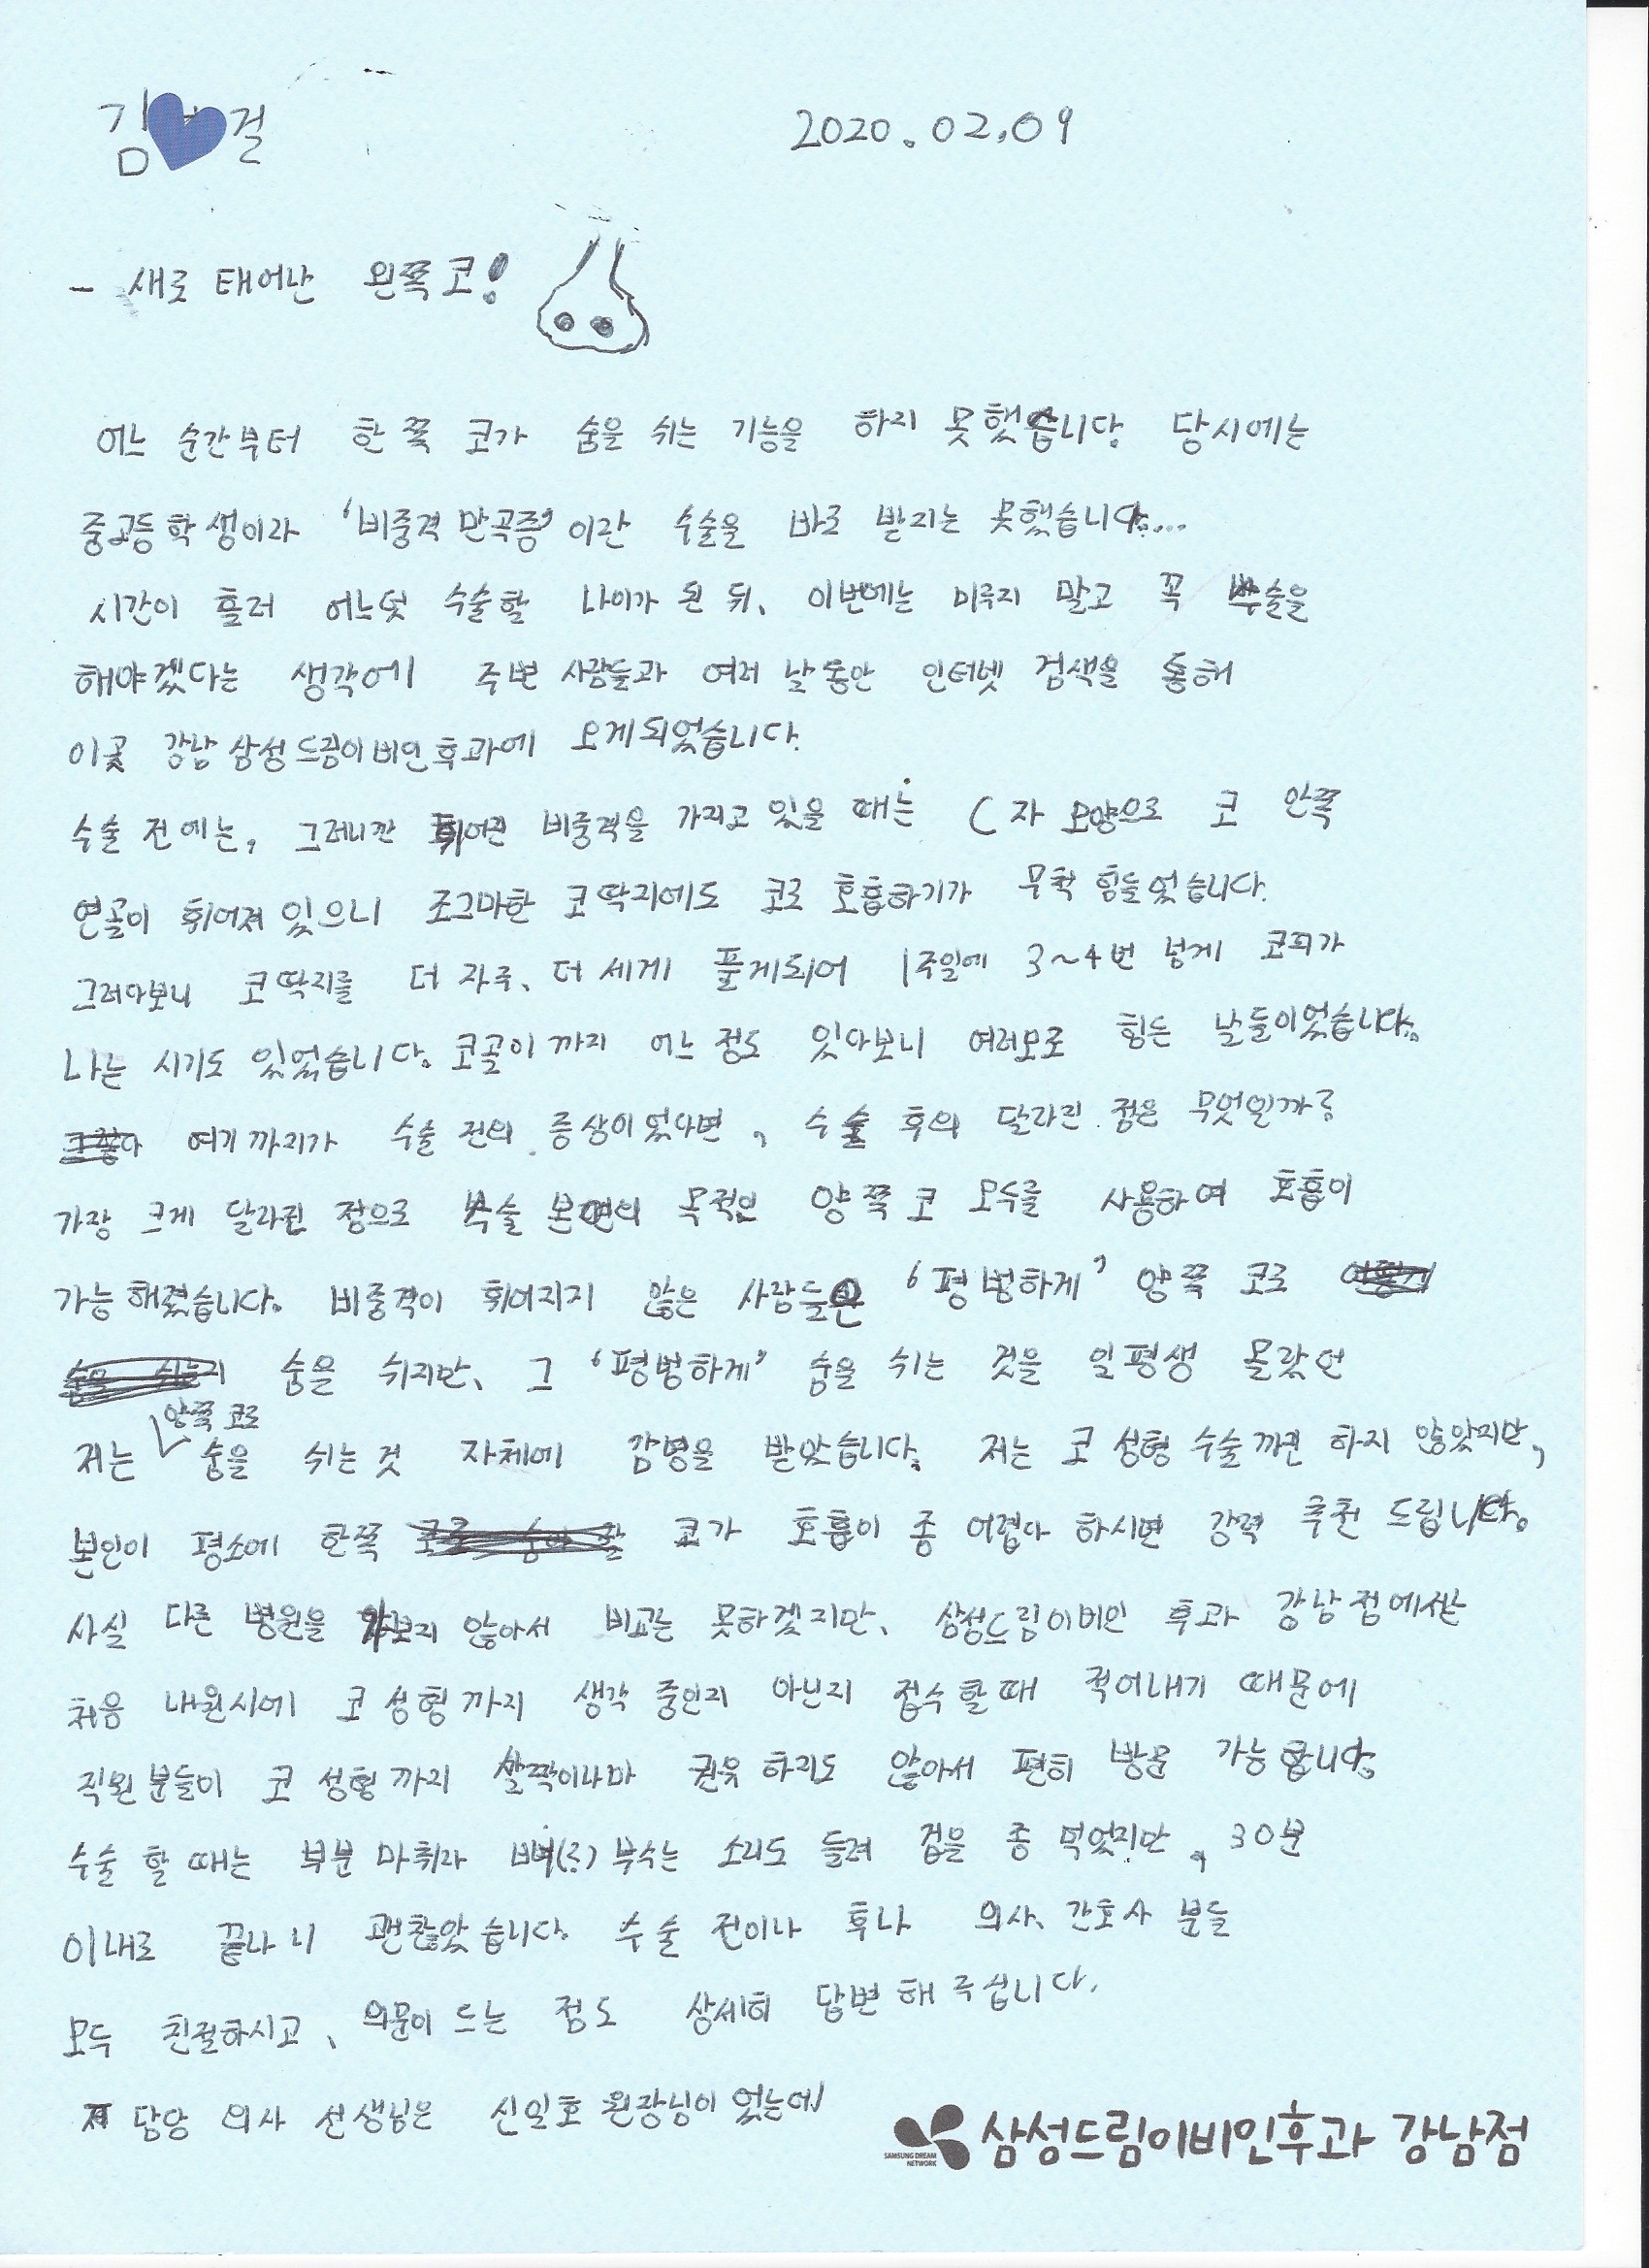 김 걸
2020.02.09
- 새로 태어난 왼쪽 코!
어느 순간부터 한쪽 코가 숨을 쉬는 기능을 하지 못했습니다. 당시에는
중고등학생이라 '비중격 만곡증' 이란 수술을 바로 받지는 못했습니다...
시간이 흘러 어느덧 수술할 나이가 된 뒤, 이번에는 미루지 말고 꼭 수술을
해야겠다는 생각에 주변 사람들과 여러 날 동안 인터넷 검색을 통해
이곳 강남 삼성드림이비인후과에 오게되었습니다.
수술 전에는, 그러니깐 휘어진 비중격을 가지고 있을 때는 C자 모양으로 코 안쪽
연골이 휘어져 있으니 조그마한 코딱지에도 코로 호흡하기가 무척 힘들었습니다.
그러다보니 코딱지를 더 자주, 더 세게 풀게되어 1주일에 3~4번 넘게 코피가
나는 시기도 있었습니다. 코골이까지 어느 정도 있다보니 여러모로 힘든 날들이었습니다.
여기까지가 수술 전의 증상이었다면, 수술 후의 달라진 점은 무엇일까?
가장 크게 달라진 점으로 수술 본연의 목적인 양쪽 코 모두를 사용하여 호흡이
가능해졌습니다. 비중격이 휘어지지 않은 사람들은 '평범하게' 양쪽 코로
숨을 쉬지만, 그 '평범하게' 숨을 쉬는 것을 일평생 몰랐던
저는 양쪽 코로 숨을 쉬는 것 자체에 감명을 받았습니다. 저는 코 성형 수술까진 하지 않았지만,
본인이 평소에 한쪽 코가 호흡이 좀 어렵다 하시면 강력 추천 드립니다.
사실 다른 병원을 가보지 않아서 비교는 못하겠지만, 삼성드림이비인후과 강남점에서는
처음 내원시에 코 성형까지 생각 중인지 아닌지 접수할때 적어내기 때문에
직원분들이 코 성형까지 살짝이나마 권유 하지도 않아서 편히 방문 가능합니다.
수술 할 때는 부분 마취라 뼈(?) 부수는 소리도 들려 겁을 좀 먹었지만, 30분
이내로 끝나니 괜찮았습니다. 수술 전이나 후나 의사, 간호사 분들
모두 친절하시고, 의문이 드는 점도 상세히 답변해 주십니다.
담당 의사 선생님은 신일호 원장님이 었는데
SAMSUNG DREAM NETWORK
삼성드림이비인후과 강남점